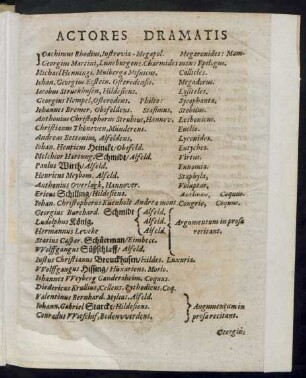 ACTORES DRAMATIS
IOachimus Rhodius, Instrovia-Megapol. Megaronides: Mam-
Georgius Martini, Luneburgens. Charmides mens: Epilogus.
Michael Hennings, Mulberga Misnicus. Callicles.
Iohan. Georgius Eccstein. Osterodensis. Megadorus.
Iacobus Struckhusen, Hildesiens. Lysiteles.
Georgius Hempel, Osterodens. Philto: Sycophanta.
Iohannes Bremer, Obsfeldens. Stasimus, Strobilus.
Anthonius Christophorus Strubeus, Hannov. Lesbonicus.
Christianus Thüneven, Mundercus. Euclio.
Andreas Bottenim, Alfeldens. Lyconides.
Iohan. Henricus Heinckt / Obsfeld. Eutyches.
Melchior Hartung / Schmidt / Alfeld. Virtus.
Paulus Werth / Alfeld. Eunomia.
Henricus Meybom. Alfeld. Staphyla.
Anthonius Overlagk, Hannover. Voluptas.
Ericus Schilling / Hildesiens. Coquus.
Iohan. Christophorus Congrio, Coquus.
Georgius Burchard. Schmidt / Alfeld.
Ludolphus König. Alfeld. Argumentum in prosa
Hermannus Leveke Alfeld. recitant.
Statius Caspar. Schüerman / Eimbecc.
VVolffgangus Süßschlaff / Alfeld.
Iustus Christianus Brouckhusen / Hildes. Luxuria.
VVolffgangus Hissing / Huxariens. Moria.
Iohannes VVeyberg Gandersheim. Coquus.
Diedericus Krullius, Cellens. Coq.
Valentinus Bernhard. Mylius, Alfeld.
Iohann. Gabriel Starcke / Hildesiens. Augumentum in
Conradus prosa recitant.
Georgiu: